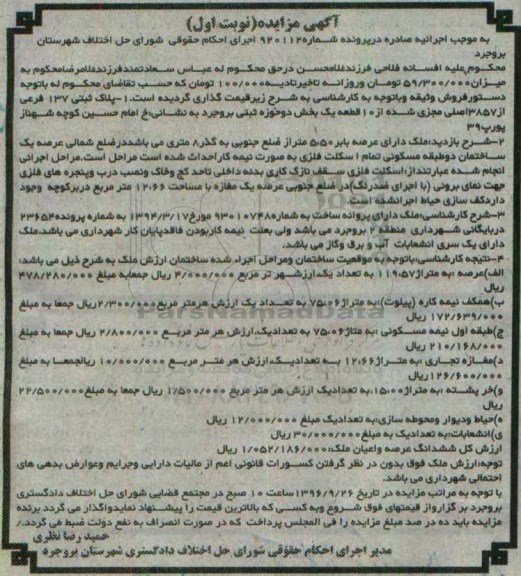 آگهی مزایده(نوبت اول)
به موجب اجرائیه صادره درپرونده شماره۹۲۰۱۱۲ اجرای احکام حقوقی شورای حل اختلاف شهرستان
بروجرد
محکوم علیه افسانه فلاحی فرزندغلامحسن درحق محکوم له عباس سعادتمندفرزندغلامرضامحکوم به
میزان۵۹/۳۰۰/۰۰۰ تومان وروزانه تاخیرتادیه۱۰۰/۰۰۰ تومان که حسب تقاضای محکوم له باتوجه
دستورفروش وثیقه وباتوجه به کارشناسی به شرح زیرقیمت گذاری گردیده است.۱-پلاک ثبتی ۱۳۷ فرعی
از۳۸۵۷اصلی مجزی شده از۱۰قطعه یک بخش دوحوزه ثبتی بروجرد به نشانی:خ امام حسین کوچه شهناز
پور۳۹
۲-شرح بازدید:ملک دارای عرصه بابر۵،۵۰ متراز ضلع جنوبی به گذر۸ متری می باشددرضلع شمالی عرصه یک
ساختمان دوطبقه مسکونی تمام اسکلت فلزی به صورت نیمه کاراحداث شده است مراحل است.مراحل اجرائی
انجام شده عبارتنداز:اسکلت فلزی سقف نازک کاری بدنه داخلی تاحد گچ وخاک ونصب درب وپنجره های فلزی
جهت نمای برونی (با اجرای ضدزنگ)در ضلع جنوبی عرصه یک مغازه با مساحت ۱۲،۶۶ متر مربع دربرکوچه وجود
داردکف سازی حیاط اجرانشده است
۳-شرح کارشناسی:ملک دارای پروانه ساخت به شماره۹۳۰۱۰۷۴۸ مورخ۱۳۹۴/۳/۱۷ به شماره پرونده۲۳۶۵۴
دربایگانی شهرداری منطقه ۲ بروجرد می باشد ولی بعلت نیمه کاربودن فاقدپایان کار شهرداری می باشد،ملک
دارای یک سری انشعابات آب و برق وگاز می باشد.
۴-نتیجه کارشناسی:باتوجه به موقعیت ساختمان ومراحل اجراء شده ساختمان ارزش ملک به شرح ذیل می باشد:
الف)عرصه :به متراژ۱۱۹،۵۷ به تعداد یک،ارزش،هر تر مربع ۴/۰۰۰/۰۰۰ ریال جمعابه مبلغ ۴۷۸/۲۸۰/۰۰۰
ریال
ب)همکف نیمه کاره (پیلوت):به متراژ۷۵،۰۶ به تعداد یک ارزش هرمتر مربع۲/۳۰۰/۰۰۰ریال جمعا به مبلغ
۱۷۲/۶۳۹/۰۰۰ ریال
ج)طبقه اول نیمه مسکونی :به متاژ۷۵،۰۶ به تعدادیک،ارزش هر متر مربع ۲/۸۰۰/۰۰۰ ریال جمعا به مبلغ
۲۱۰/۱۶۸/۰۰۰ ریال
د)مغازه تجاری :به متراژ۱۲،۶۶ به تعدادیک،ارزش هر متر مربع ۱۰/۰۰۰/۰۰۰ ریالجمعا به مبلغ
۱۲۶/۶۰۰/۰۰۰ریال
و)خر پشته :به متراژ۱۵،۰۰،به تعدادیک ارزش هر متر مربع ۱/۵۰۰/۰۰۰ ریال جمعا به مبلغ۲۲/۵۰۰/۰۰۰
ریال
ه)حیاط ودیوار ومحوطه سازی:به تعدادیک مبلغ ۱۲/۰۰۰/۰۰۰ ریال
ی)انشعابات:به تعدادیک به مبلغ۳۰/۰۰۰/۰۰۰ ریال
ارزش کل ششدانگ عرصه واعیان ملک:۱/۰۵۲/۱۸۶/۰۰۰ ریال
توجه:ارزش ملک فوق بدون در نظر گرفتن کسورات قانونی اعم از مالیات دارایی وجرایم وعوارض بدهی های
احتمالی شهرداری می باشد.
با توجه به مراتب مزایده در تاریخ ۱۳۹۶/۹/۲۶ساعت ۱۰ صبح در مجتمع قضایی شورای حل اختلاف دادگستری
بروجرد بر گزارواز قیمتهای فوق شروع وبه کسی که بالاترین قیمت را پیشنهاد نمایدواگذار می گردد برنده
مزایده باید ده در صد مبلغ مزایده را فی المجلس پرداخت که در صورت انصراف به نفع دولت ضبط می گردد./
حمید رضا نظری
مدیر اجرای احکام حقوقی شورای حل اختلاف دادگستری شهرستان بروجرد
ParsNamadData